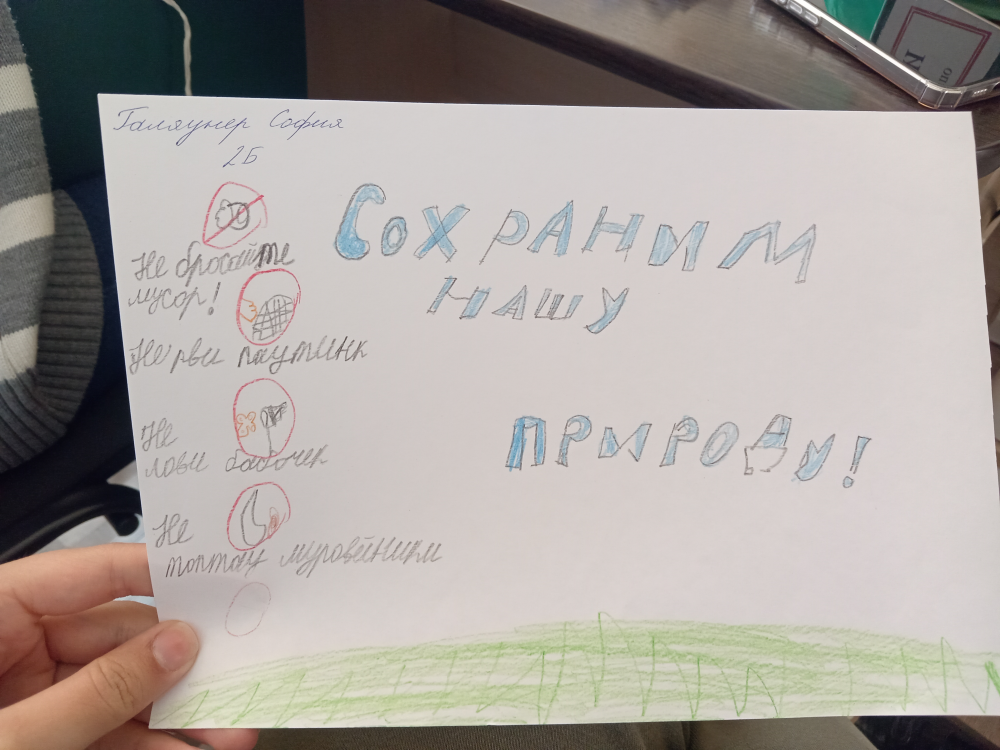 Галяунер София
2Б
Сохраним
нашу
природу!
Не бросайте
мусор!
Не рви паутинк
Не
лови бабочек
Не
топтай муравейники